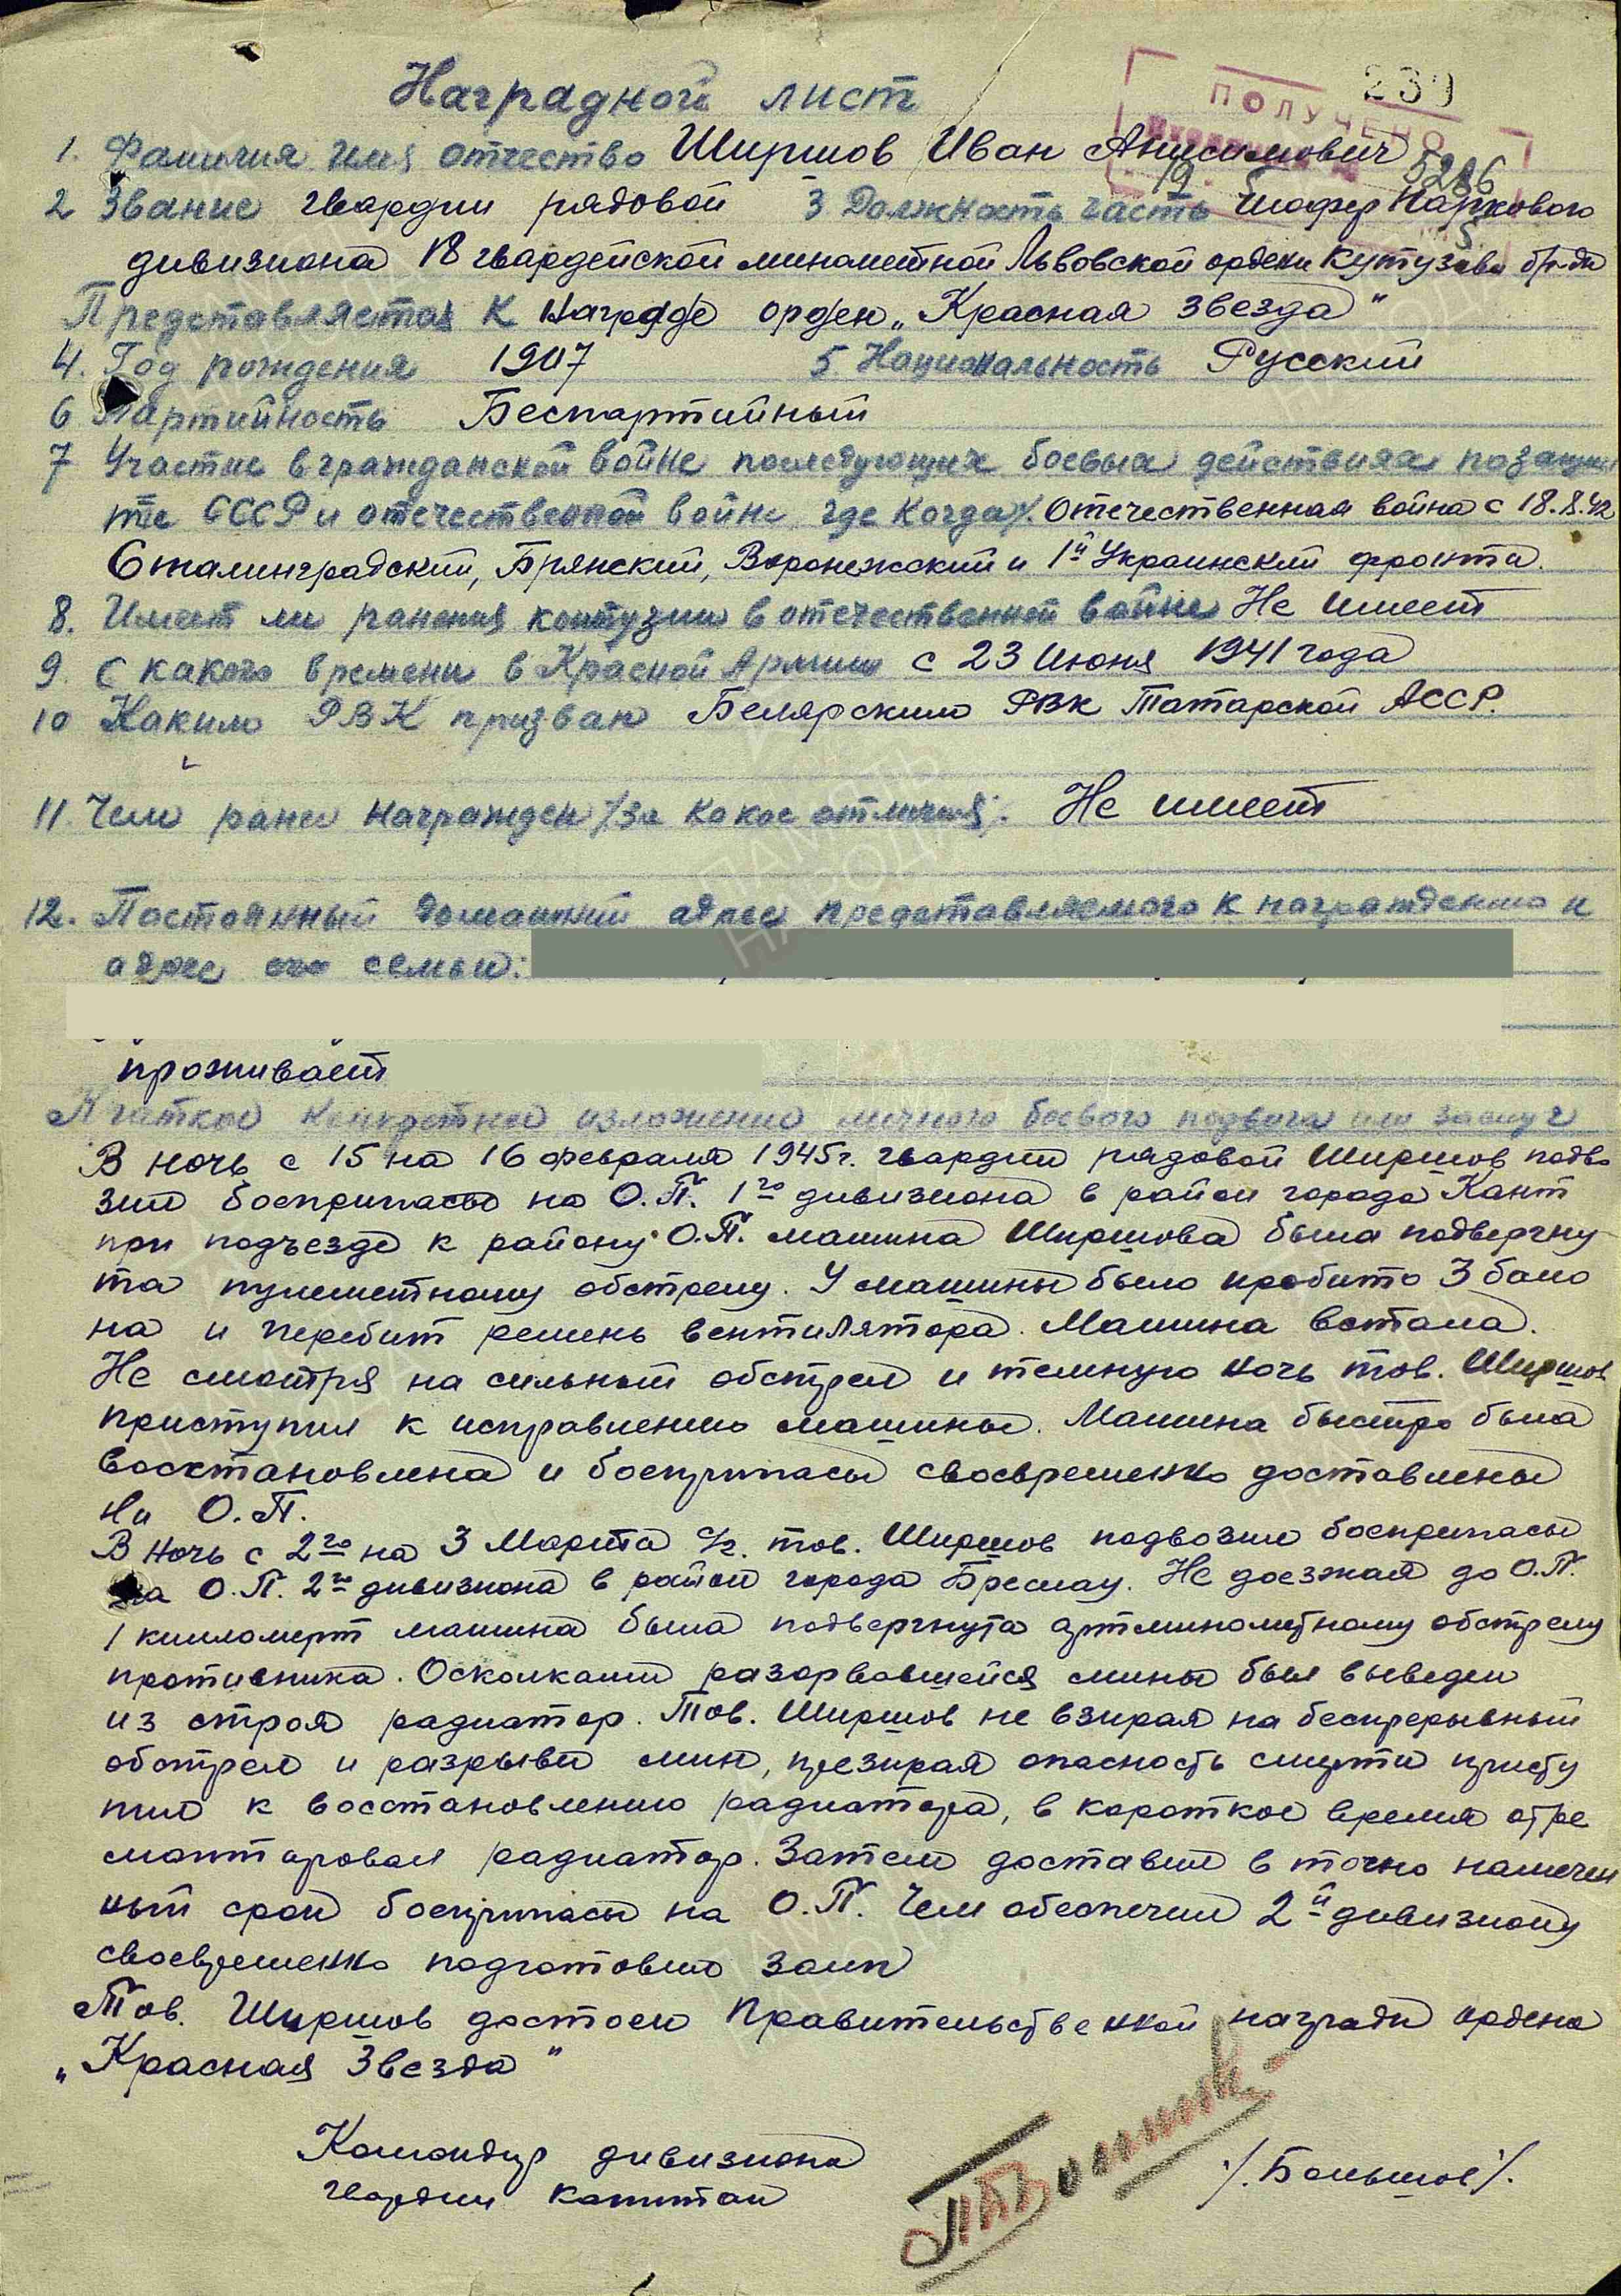 239
ПОЛУЧЕНО
Наградной лист
1. Фамилия имя отчество Ширшов Иван Анисимович
19 5286
2 Звание гвардии рядовой 3 Должность часть Шофер Паркового
дивизиона 18 гвардейской минометной Львовской ордена Кутузова бр-ды
Представляется к Награде орден „Красная звезда"
4. Год рождения 1907 5 Национальность Русский
6 Партийность Беспартийный
7 Участие в гражданской войне последующих боевых действиях по защи
те СССР и отечественной войне где когда/. Отечественная война с 18.8.42
Сталинградский, Брянский, Воронежский и 1й Украинский фронты.
8. Имеет ли ранения контузии в отечественной войне Не имеет
9. С какого времени в Красной Армии с 23 Июня 1941 года
10 Каким РВК призван Белярским РВК Татарской АССР.
11. Чем ранее награжден /за какое отличия/. Не имеет
12. Постоянный домашний адрес представляемого к награждению и
адрес его семьи:
проживает
Краткое конкретное изложение личного боевого подвига или заслуг
В ночь с 15 на 16 февраля 1945г. гвардии рядовой Ширшов подво
зил боеприпасы на О.П. 1го дивизиона в район города Кант
при подъезде к району О.П. машина Ширшова была подвергну
та пулеметному обстрелу. У машины было пробито 3 бало
на и перебит ремень вентилятора. Машина встала.
Не смотря на сильный обстрел и темную ночь тов. Ширшов
приступил к исправлению машины. Машина быстро была
восстановлена и боеприпасы своевременно доставлены
на О.П.
В ночь с 2го на 3 Марта с/г. тов. Ширшов подвозил боеприпасы
на О.П. 2го дивизиона в район города Бреслау. Не доезжая до О.П.
1 киломерт машина была подвергнута артминометному обстрелу
противника. Осколками разорвавшейся мины был выведен
из строя радиатор. Тов. Ширшов не взирая на беспрерывный
обстрел и разрывы мин, презирая опасность смерти присту
пил к восстановлению радиатора, в короткое время отре
монтировал радиатор. Затем доставил в точно намечен
ный срок боеприпасы на О.П. Чем обеспечил 2й дивизиону
своевременно подготовить залп
Тов. Ширшов достоен Правительственной награды ордена
„Красная Звезда"
Командир дивизиона
гвардии капитан /. Большов /.